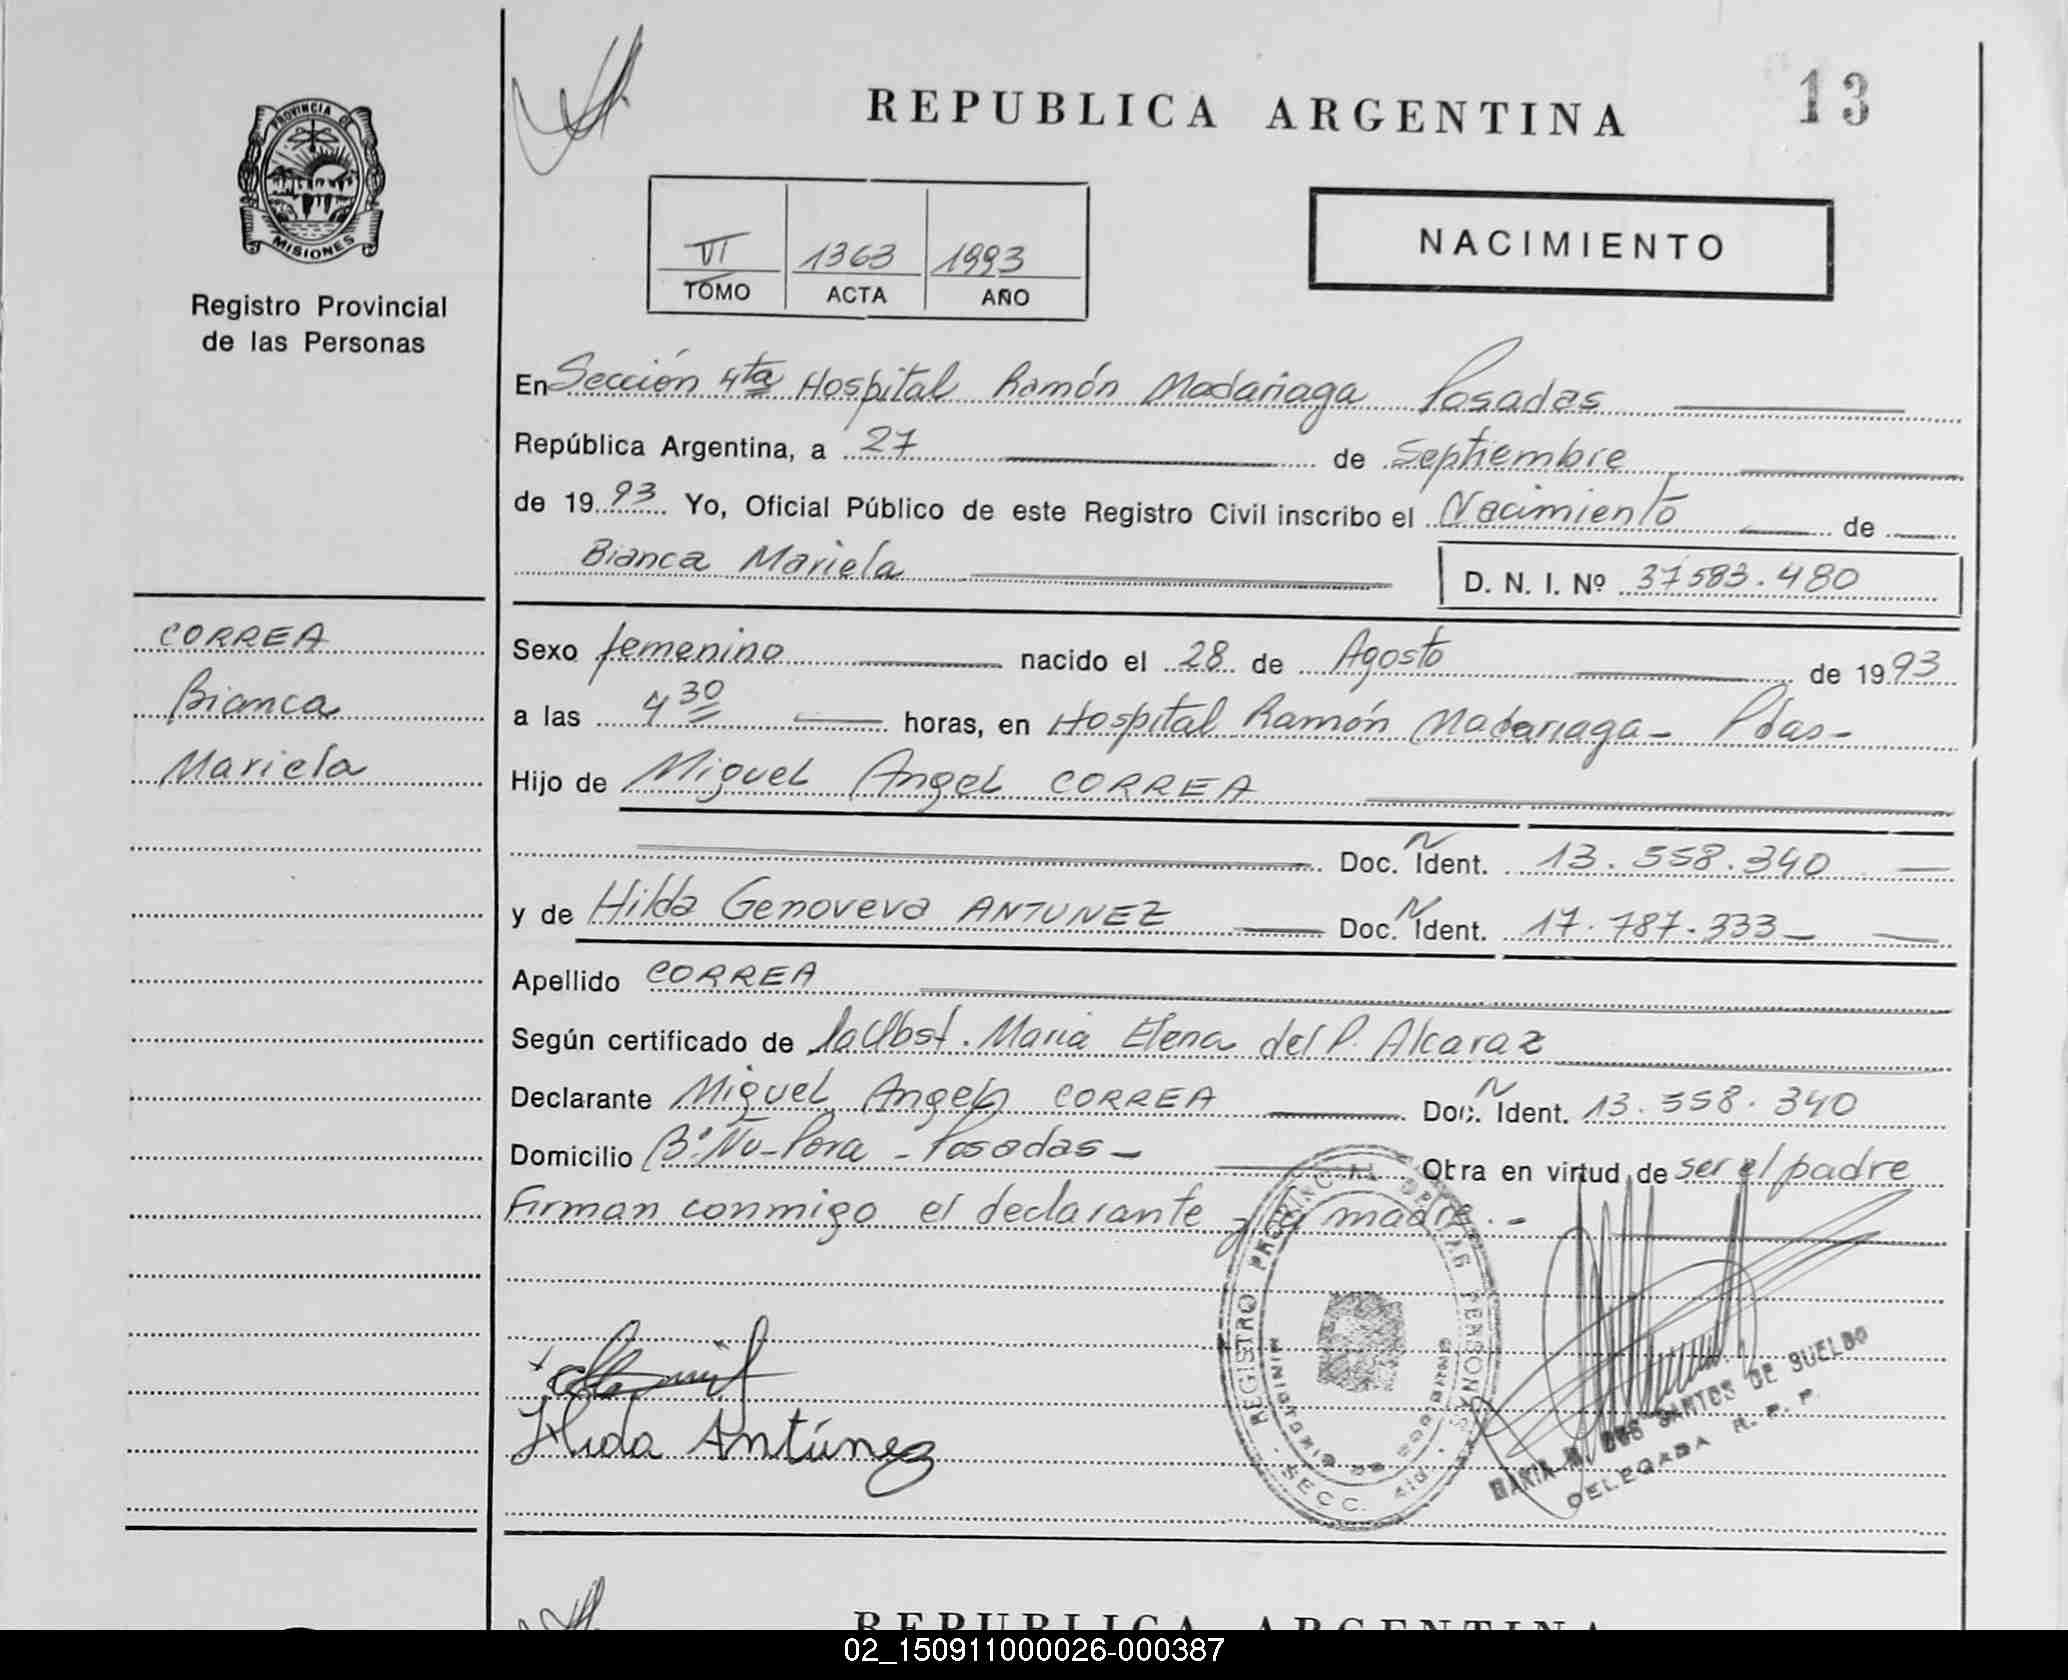 REPUBLICA ARGENTINA
13
PROVINCIA DE
MISIONES
Registro Provincial
de las Personas
VI 1363 1993
TOMO ACTA AÑO
NACIMIENTO
En Sección 4ta Hospital Ramón Madariaga Posadas
República Argentina, a 27 de Septiembre
de 1993 Yo, Oficial Público de este Registro Civil inscribo el Nacimiento de
Bianca Mariela D. N. I. Nº 37583.480
CORREA
Bianca
Mariela
Sexo femenino nacido el 28 de Agosto de 1993
a las 4 30 horas, en Hospital Ramón Madariaga - Pdas -
Hijo de Miguel Angel CORREA
Doc. Ident. 13.558.340
y de Hilda Genoveva ANTUNEZ Doc. Ident. 17.787.333
Apellido CORREA
Según certificado de la Obst. Maria Elena del P. Alcaraz
Declarante Miguel Angel CORREA Doc. Ident. 13.558.340
Domicilio Bº Ñu-Pora - Posadas - Otra en virtud de ser el padre
Firman conmigo el declarante y la madre.-
Hilda Antúnez
REGISTRO PROVINCIAL DE LAS PERSONAS
MINISTERIO DE GOBIERNO
SECC. 4ta
MARIA M. DOS SANTOS DE SUELDO
DELEGADA R. P. P.
REPUBLICA ARGENTINA
02_150911000026-000387